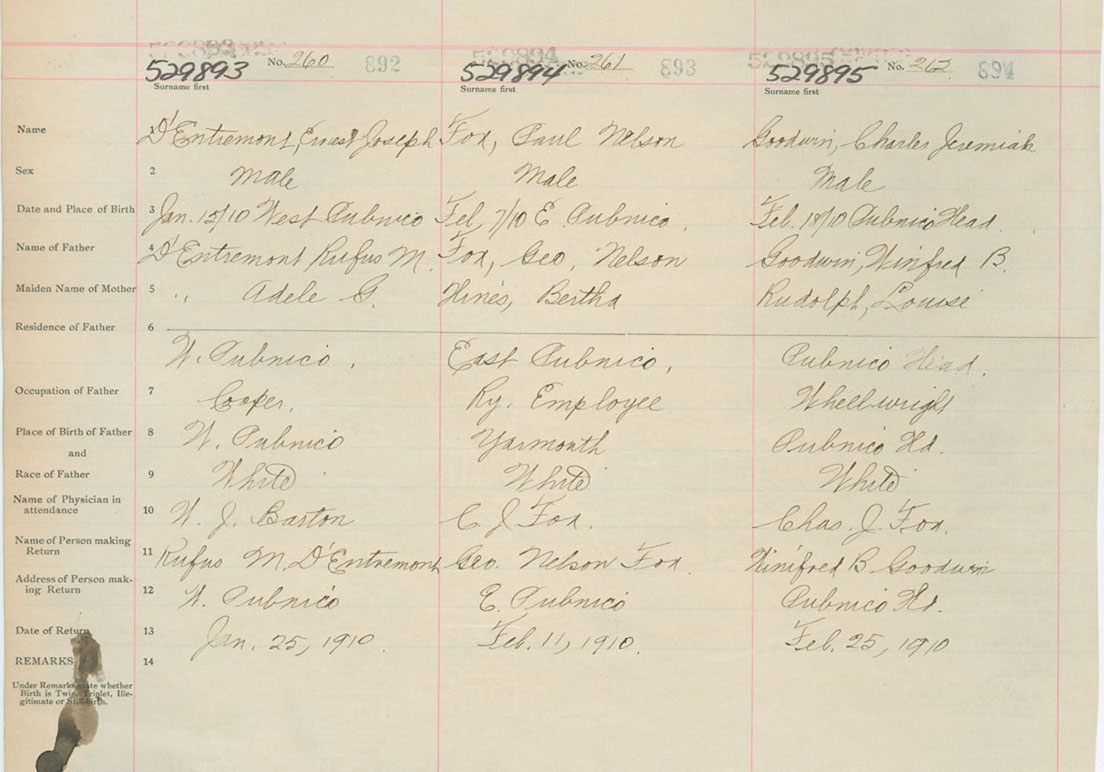 529893 No. 260 892 529894 No. 261 893 529895 No. 262 894
Surname first Surname first Surname first
Name 1 D'Entremont, Ernest Joseph Fox, Paul Nelson Goodwin, Charles Jeremiah
Sex 2 Male Male Male
Date and Place of Birth 3 Jan. 15/10 West Pubnico Feb. 7/10 E. Pubnico. Feb. 18/10 Pubnico Head.
Name of Father 4 D'Entremont Rufus M. Fox, Geo. Nelson Goodwin, Winfred B.
Maiden Name of Mother 5 " Adele G. Hines, Bertha Rudolph, Louise
Residence of Father 6
W. Pubnico, East Pubnico, Pubnico Head.
Occupation of Father 7 Cooper, Ry. Employee Wheelwright
Place of Birth of Father 8 W. Pubnico Yarmouth Pubnico Hd.
and
Race of Father 9 White White White
Name of Physician in
attendance 10 W. J. Barton C J Fox. Chas. J. Fox.
Name of Person making
Return 11 Rufus M. D'Entremont Geo. Nelson Fox. Winifred B. Goodwin
Address of Person mak-
ing Return 12 W. Pubnico E. Pubnico Pubnico Hd.
Date of Return 13 Jan. 25, 1910. Feb. 11, 1910. Feb. 25, 1910
REMARKS 14
Under Remarks state whether
Birth is Twin, Triplet, Ille-
gitimate or Still-birth.